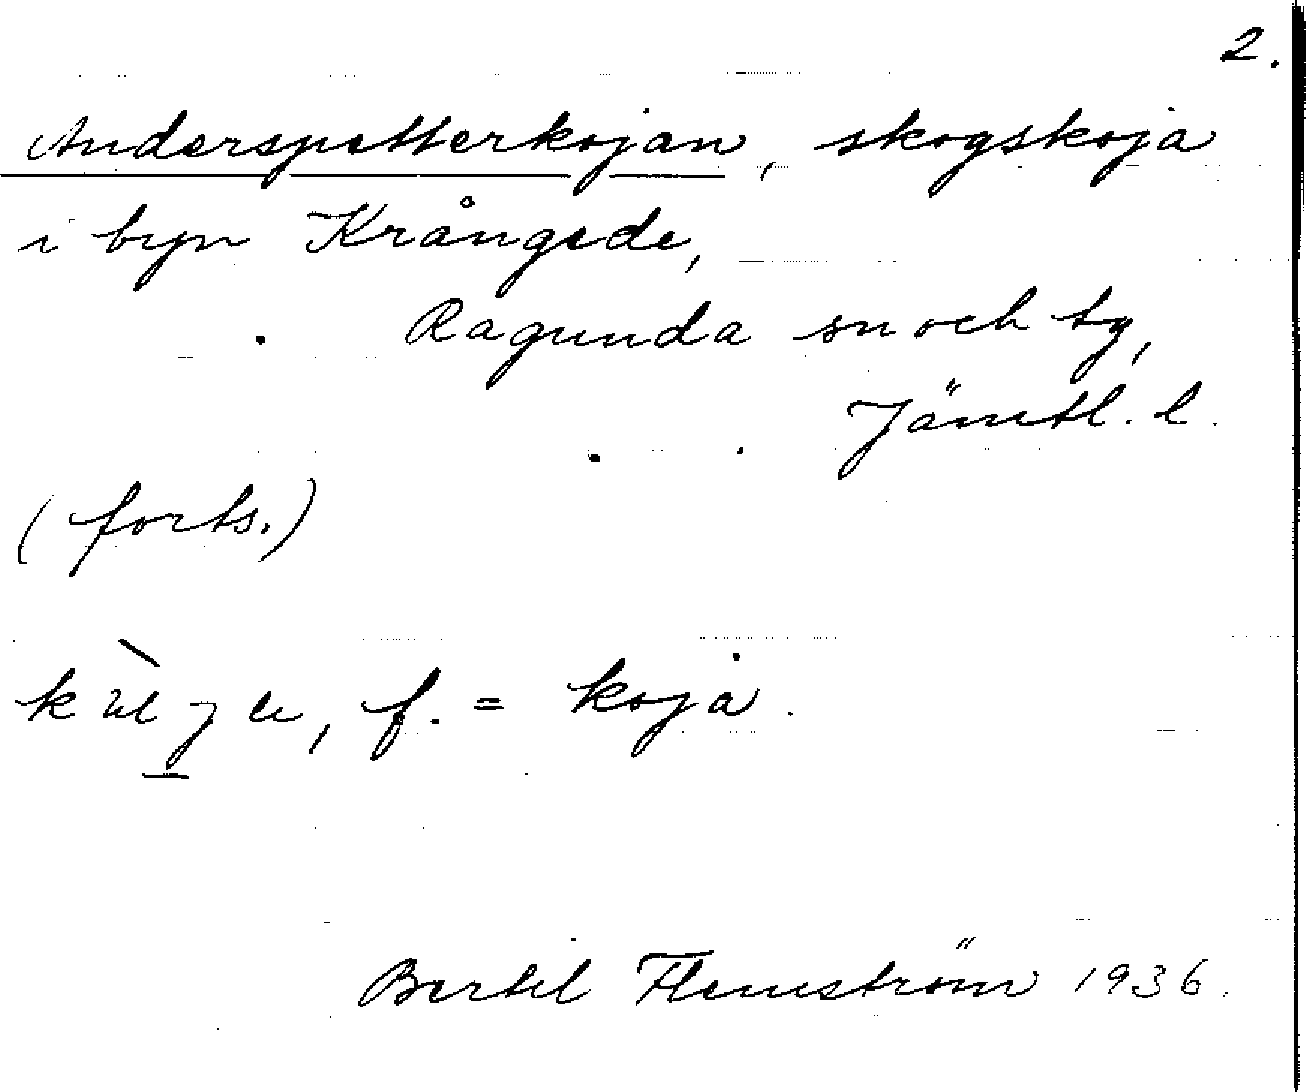 2.
Anderspetterkojan, skogskoja
i byn Krångede,
Ragunda sn och tg,
Jämtl. l.
(forts.)
f. = koja.
Bertil Flemström 1936.